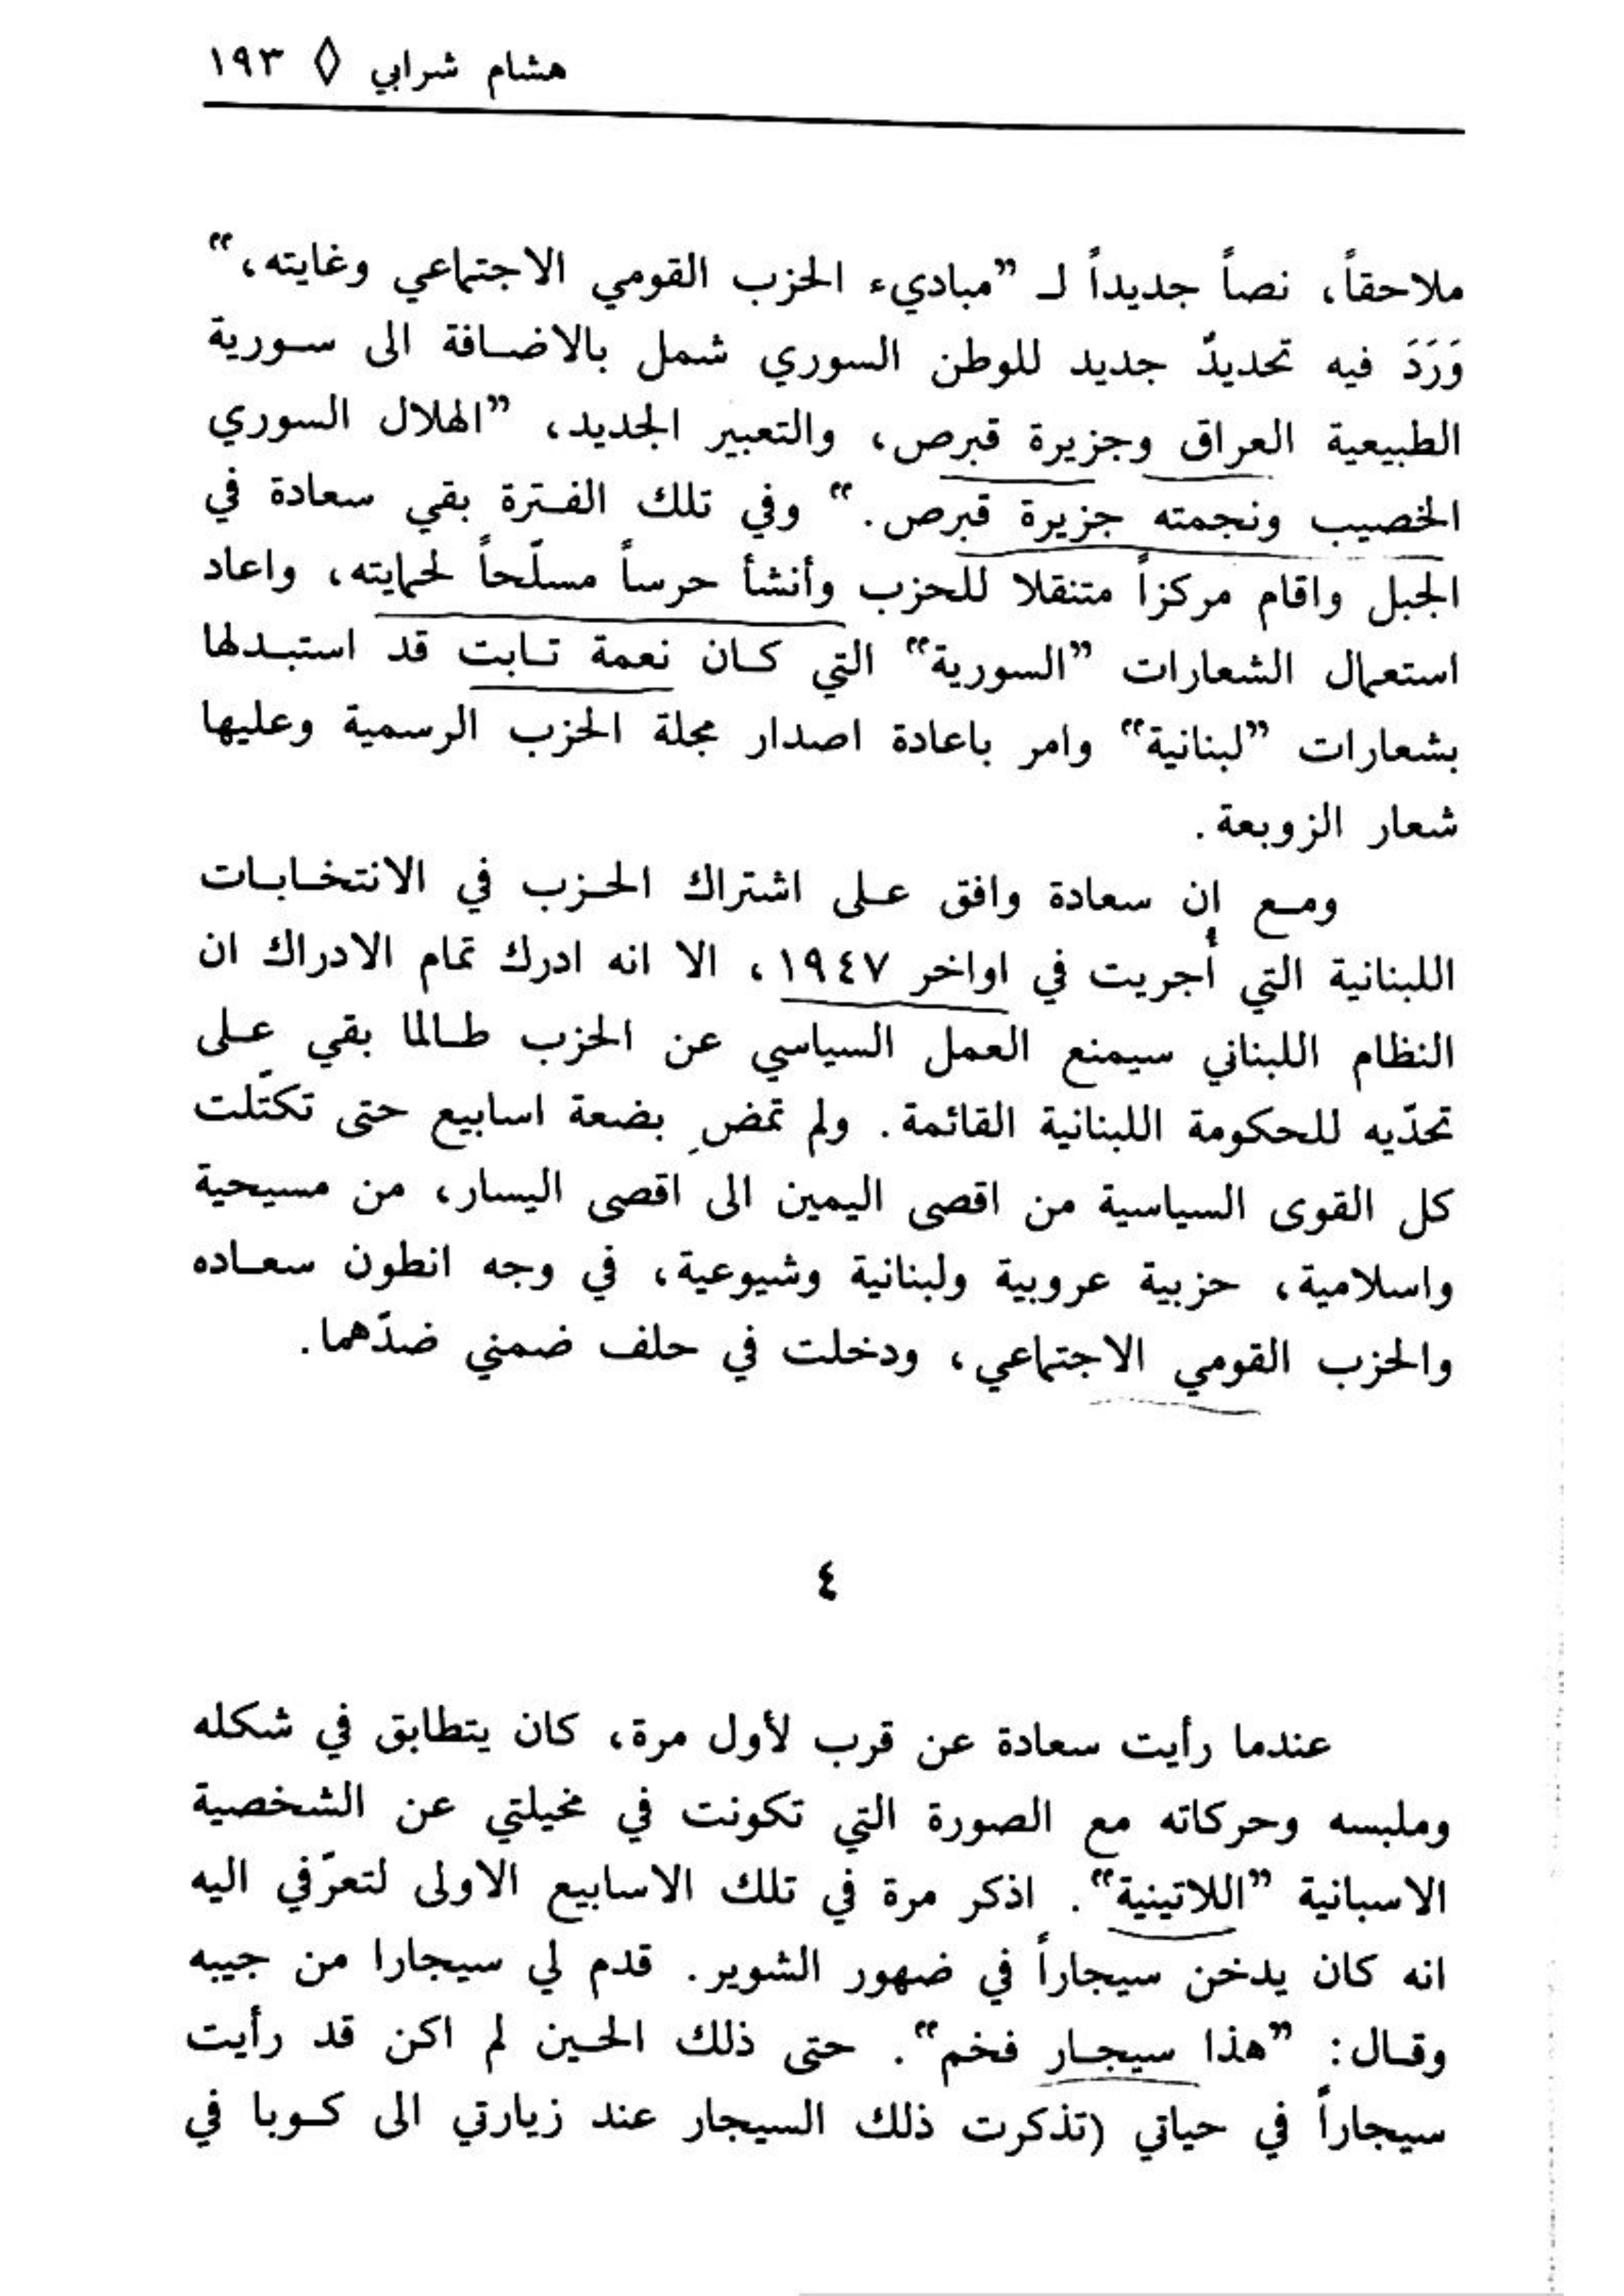 هشام شرابي ◊ ١٩٣
ملاحقاً، نصاً جديداً لـ ”مباديء الحزب القومي الاجتماعي وغايته،“
وَرَدَ فيه تحديدٌ جديد للوطن السوري شمل بالاضافة الى سورية
الطبيعية العراق وجزيرة قبرص، والتعبير الجديد، ”الهلال السوري
الخصيب ونجمته جزيرة قبرص.“ وفي تلك الفترة بقي سعادة في
الجبل واقام مركزاً متنقلا للحزب وأنشأ حرساً مسلّحاً لحمايته، واعاد
استعمال الشعارات ”السورية“ التي كان نعمة تابت قد استبدلها
بشعارات ”لبنانية“ وامر باعادة اصدار مجلة الحزب الرسمية وعليها
شعار الزوبعة.
ومع إن سعادة وافق على اشتراك الحزب في الانتخابات
اللبنانية التي أُجريت في اواخر ١٩٤٧، الا انه ادرك تمام الادراك ان
النظام اللبناني سيمنع العمل السياسي عن الحزب طالما بقي على
تحدّيه للحكومة اللبنانية القائمة. ولم تمضِ بضعة اسابيع حتى تكتّلت
كل القوى السياسية من اقصى اليمين الى اقصى اليسار، من مسيحية
واسلامية، حزبية عروبية ولبنانية وشيوعية، في وجه انطون سعاده
والحزب القومي الاجتماعي، ودخلت في حلف ضمني ضدّهما.
٤
عندما رأيت سعادة عن قرب لأول مرة، كان يتطابق في شكله
وملبسه وحركاته مع الصورة التي تكونت في مخيلتي عن الشخصية
الاسبانية ”اللاتينية“. اذكر مرة في تلك الاسابيع الاولى لتعرّفي اليه
انه كان يدخن سيجاراً في ضهور الشوير. قدم لي سيجارا من جيبه
وقال: ”هذا سيجار فخم“. حتى ذلك الحين لم اكن قد رأيت
سيجاراً في حياتي (تذكرت ذلك السيجار عند زيارتي الى كوبا في